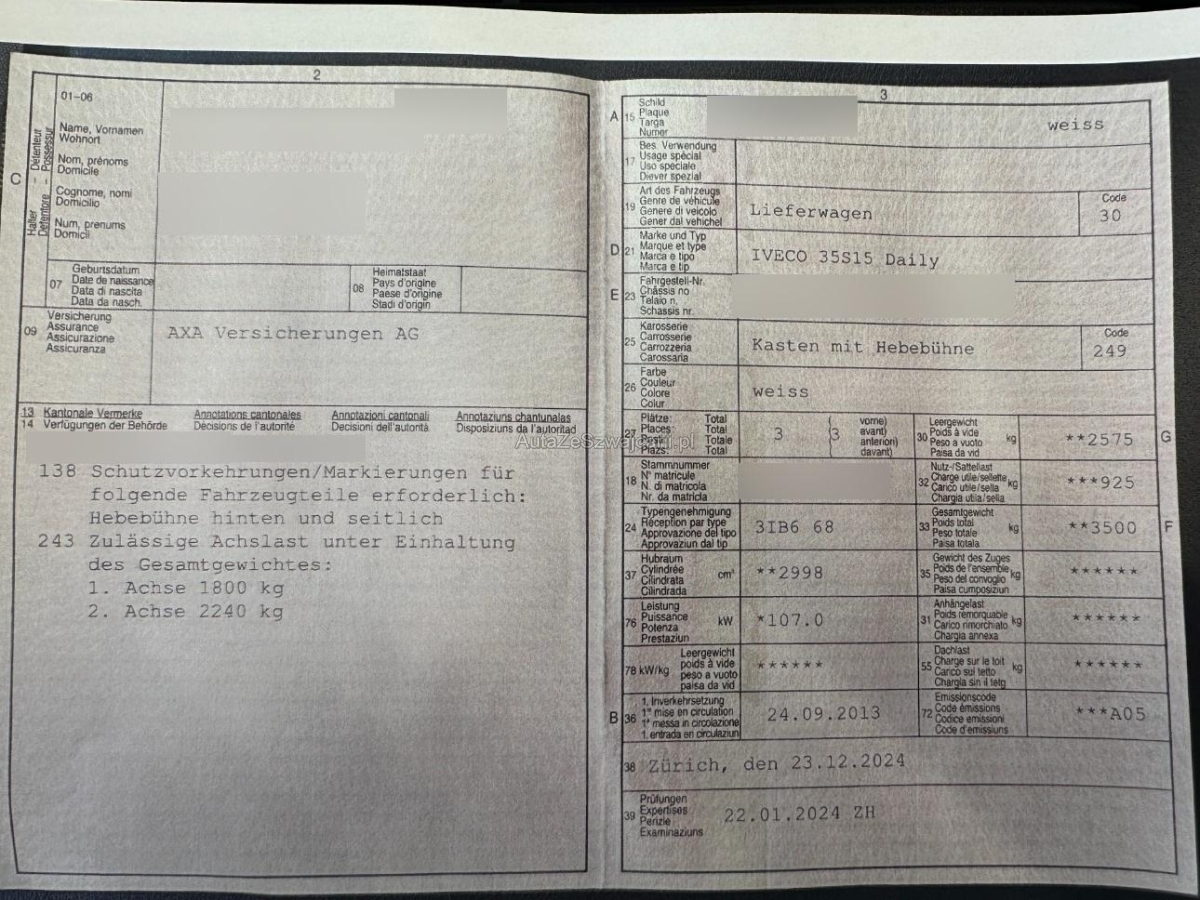 2
01-06
Name, Vornamen
Wohnort
Nom, prénoms
Domicile
Cognome, nomi
Domicilio
Num, prenums
Domicil
C
Halter - Détenteur
Detentore - Possessur
07
Geburtsdatum
Date de naissance
Data di nascita
Data da nasch.
08
Heimatstaat
Pays d'origine
Paese d'origine
Stadi d'origin
09
Versicherung
Assurance
Assicurazione
Assicuranza
AXA Versicherungen AG
13 Kantonale Vermerke Annotations cantonales Annotazioni cantonali Annotaziuns chantunalas
14 Verfügungen der Behörde Décisions de l'autorité Decisioni dell'autorità Disposiziuns da l'autoritad
138 Schutzvorkehrungen/Markierungen für
folgende Fahrzeugteile erforderlich:
Hebebühne hinten und seitlich
243 Zulässige Achslast unter Einhaltung
des Gesamtgewichtes:
1. Achse 1800 kg
2. Achse 2240 kg
AutaZeSzwajcarii.pl
3
A 15
Schild
Plaque
Targa
Numer
weiss
17
Bes. Verwendung
Usage spécial
Uso speciale
Diever spezial
19
Art des Fahrzeugs
Genre de véhicule
Genere di veicolo
Gener dal vehichel
Lieferwagen
Code
30
D 21
Marke und Typ
Marque et type
Marca e tipo
Marca e tip
IVECO 35S15 Daily
E 23
Fahrgestell-Nr.
Châssis no
Telaio n.
Schassis nr.
25
Karosserie
Carrosserie
Carrozzeria
Carossaria
Kasten mit Hebebühne
Code
249
26
Farbe
Couleur
Colore
Colur
weiss
27
Plätze: Total
Places: Total
Posti: Totale
Plazs: Total
3
(3
vorne)
avant)
anteriori)
davant)
30
Leergewicht
Poids à vide
Peso a vuoto
Paisa da vid
kg
**2575
G
18
Stammnummer
N° matricule
N. di matricola
Nr. da matricla
32
Nutz-/Sattellast
Charge utile/sellette
Carico utile/sella
Chargia utila/sella
kg
***925
24
Typengenehmigung
Réception par type
Approvazione del tipo
Approvaziun dal tip
3IB6 68
33
Gesamtgewicht
Poids total
Peso totale
Paisa totala
kg
**3500
F
37
Hubraum
Cylindrée
Cilindrata
Cilindrada
cm³
**2998
35
Gewicht des Zuges
Poids de l'ensemble
Peso del convoglio
Paisa cumposiziun
kg
******
76
Leistung
Puissance
Potenza
Prestaziun
kW
*107.0
31
Anhängelast
Poids remorquable
Carico rimorchiato
Chargia annexa
kg
******
78 kW/kg
Leergewicht
poids à vide
peso a vuoto
paisa da vid
******
55
Dachlast
Charge sur le toit
Carico sul tetto
Chargia sin il tetg
kg
******
B 36
1. Inverkehrsetzung
1re mise en circulation
1a messa in circolazione
1. entrada en circulaziun
24.09.2013
72
Emissionscode
Code émissions
Codice emissioni
Code d'emissiuns
***A05
38 Zürich, den 23.12.2024
39
Prüfungen
Expertises
Perizie
Examinaziuns
22.01.2024 ZH